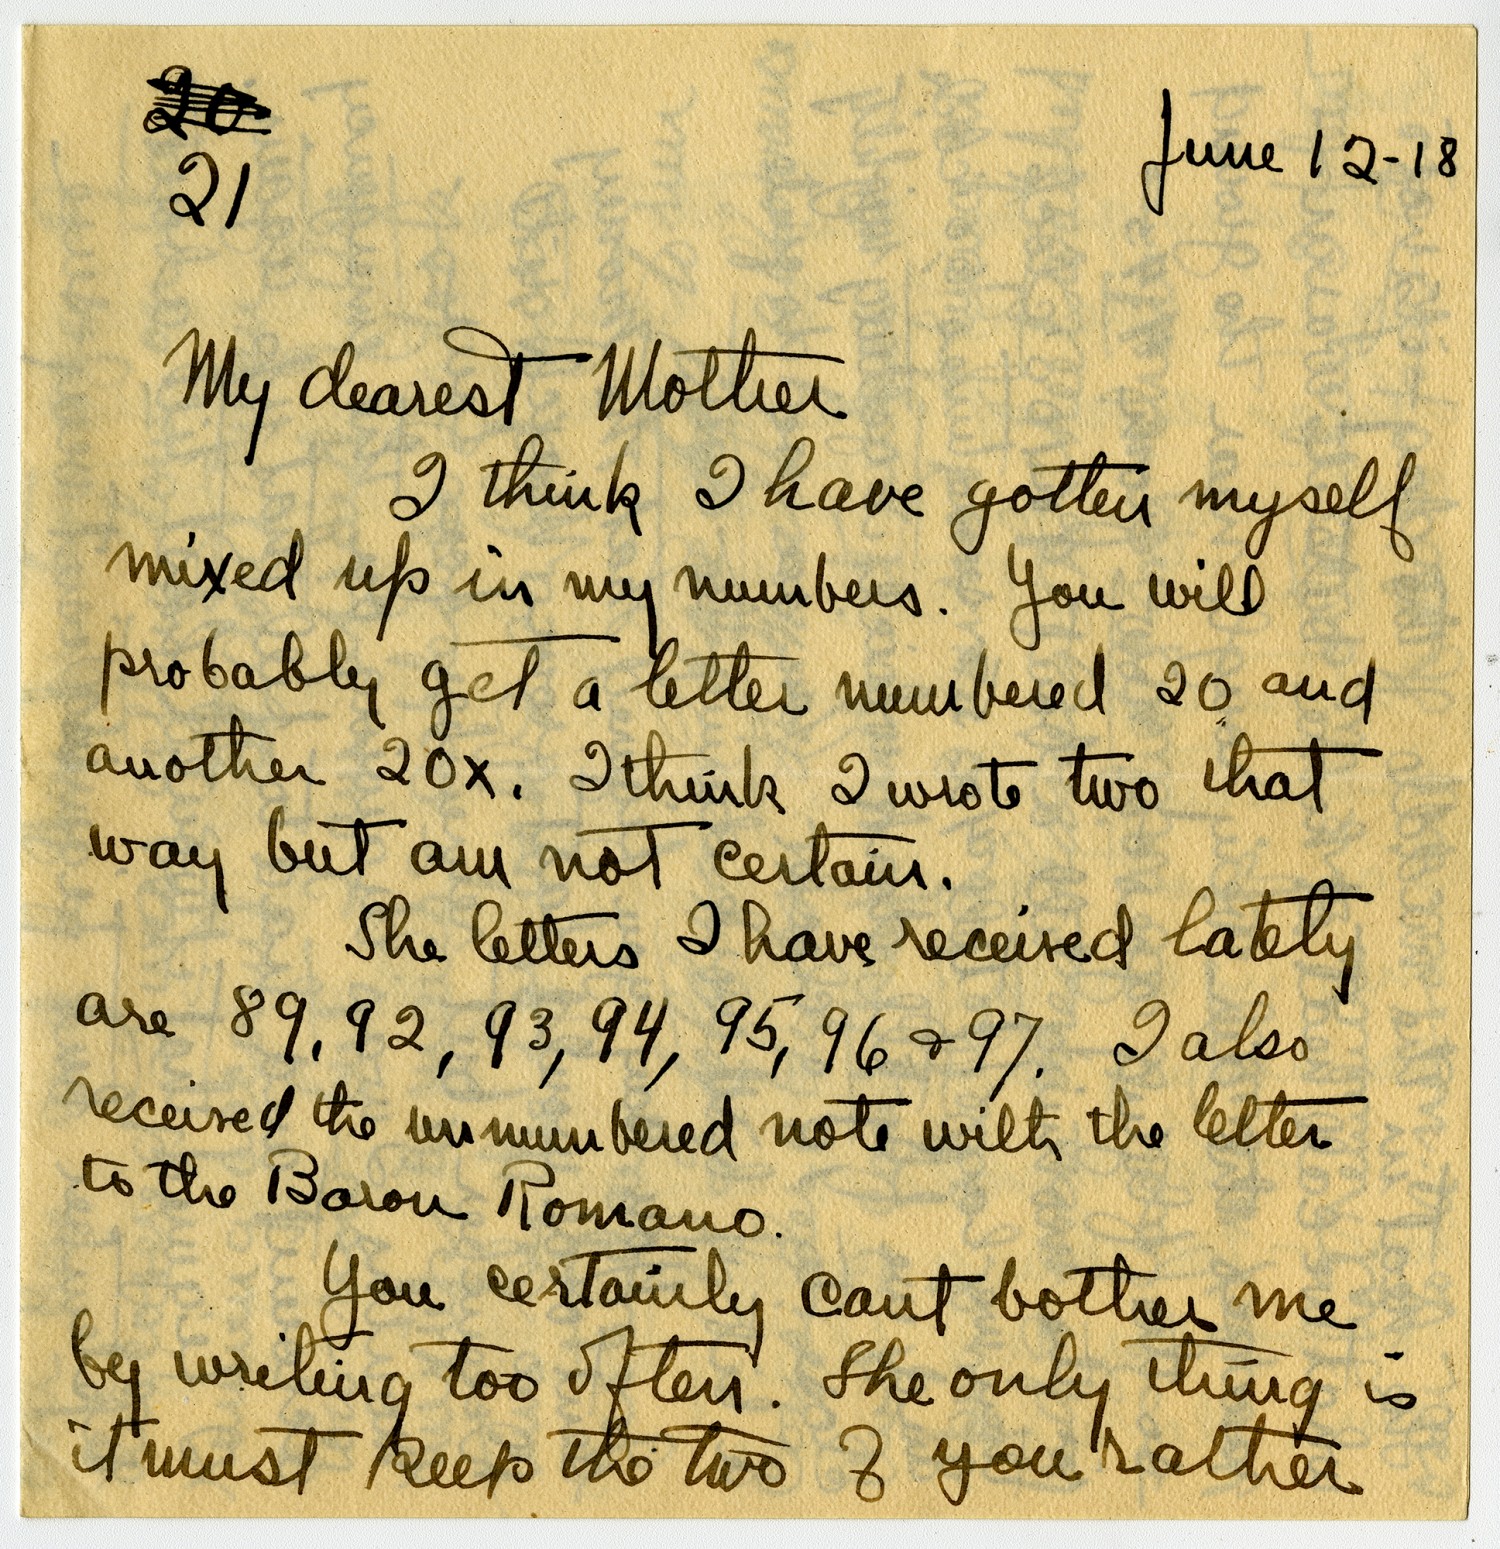 20
21
June 12-18
My dearest Mother
I think I have gotten myself
mixed up in my numbers. You will
probably get a letter numbered 20 and
another 20x. I think I wrote two that
way but am not certain.
The letters I have received lately
are 89, 92, 93, 94, 95, 96 & 97. I also
received the unnumbered note with the letter
to the Baron Romano.
You certainly cant bother me
by writing too often. The only thing is
it must keep the two of you rather